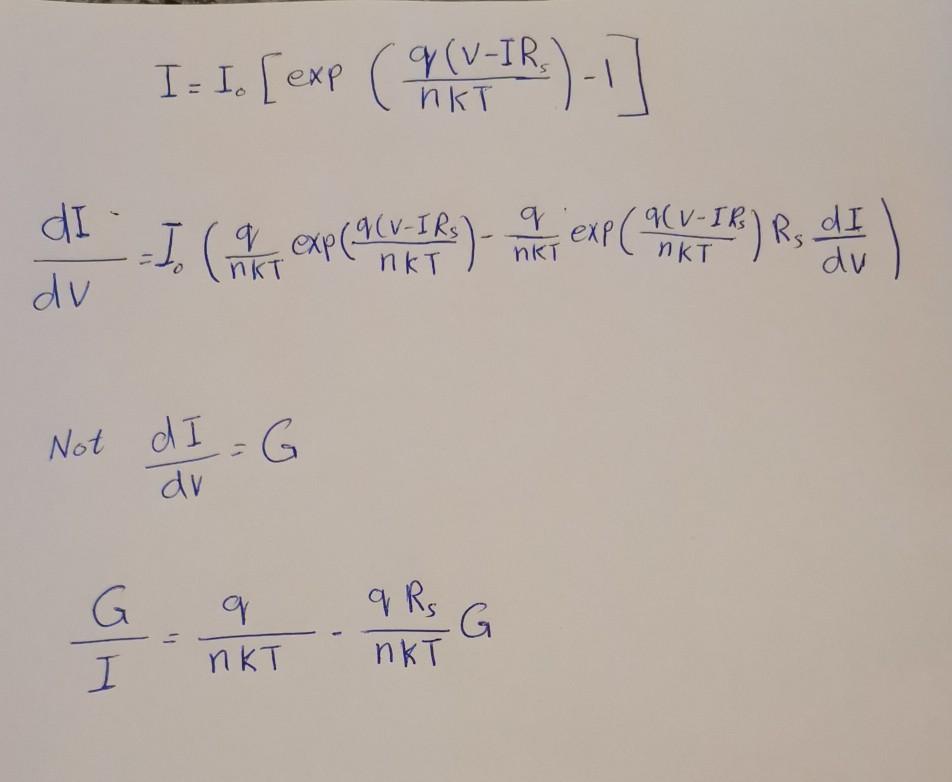 I = I₀ [ exp ( q(V-IRₛ / nKT ) -1 ]
dI/dV = I₀ ( q/nKT exp( q(V-IRₛ) / nKT ) - q/nKT exp( q(V-IRₛ) / nKT ) Rₛ dI/dV )
Not dI/dV = G
G/I = q/nKT - q Rₛ/nKT G